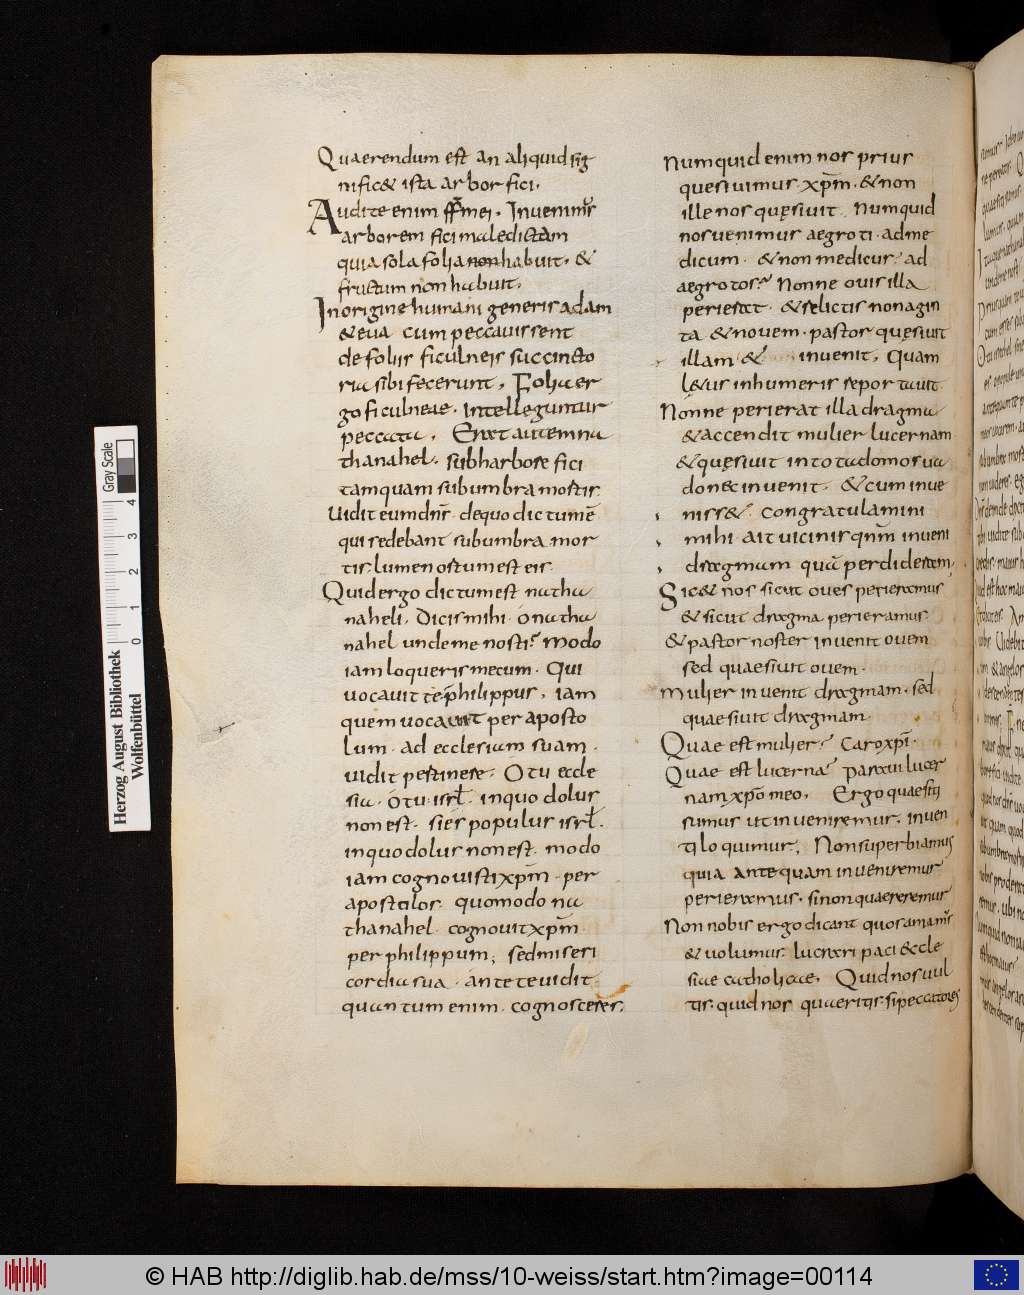 Quaerendum est an aliquid sig
nific& ista arbor fici.
Audite enim ff̄ mei. Invenim̄s
arborem fici maledictam
quia sola folia non habuit. &
fructum non habuit.
In origine humani generis adam
& eua cum peccavissent
de foliis ficulneis succincto
ria sibi fecerunt. Folia er
go ficulneae. intelleguntur
peccata. Erat autem na
thanahel. sub harbore fici
tamquam sub umbra mostis
Uidit eum dn̄s. de quo dictum ē
qui sedebant sub umbra mor
tis. lumen ostum est eis
Quid ergo dictum est natha
naheli. Dicis mihi. o natha
nahel unde me nosti? modo
iam loqueris mecum. Qui
vocavit te philippus. iam
quem vocavit per aposto
lum. ad ecclesiam suam.
uidit pestinere. O tu eccle
sia. O tu isrl̄. in quo dolus
non est. si es populus isrl̄.
in quo dolus non est. modo
iam cognovisti xp̄m. per
apostolos quomodo na
thanahel. cognovit xp̄m.
per philippum; sed miseri
cordia sua. ante te vidit
quam tum enim. cognosceres.
Numquid enim nos prius
quesivimus xp̄m. & non
ille nos quęsivit. Numquid
nos venimus aegroti. ad me
dicum. & non medicus? ad
aegrotos? Nonne ovis illa
perierat. & relictis nonagin
ta & novem. pastor quęsivit
illam & invenit. Quam
l&us in humeris reportavit
Nonne perierat illa dragma
& accendit mulier lucernam
& quęsivit in tota domo sua
donec invenit. & cum inve
niss& congratulamini
mihi. ait vicinis qn̄m inveni
dragmam quā perdideram
Sic& nos sicut oves perieramus
& sicut dragma perieramus
& pastor noster invenit ovem
sed quaesivit ovem.
Mulier invenit dragmam. sed
quaesivit dragmam
Quae est mulier? Caro xp̄i.
Quae est lucerna? Paravi lucer
nam xp̄o meo. Ergo quaesiti
sumus ut inveniremur. inven
ti loquimur. Non superbiamus
quia antequam inveniremur
perieramus. si non quaereremur
Non nobis ergo dicant quos amam̄s
& volumus. lucrari paci eccle
siae catholicae. Quid nos vul
tis. quid nos quaeritis. si peccatores
Herzog August Bibliothek
Wolfenbüttel
0 1 2 3 4
Gray Scale
© HAB http://diglib.hab.de/mss/10-weiss/start.htm?image=00114